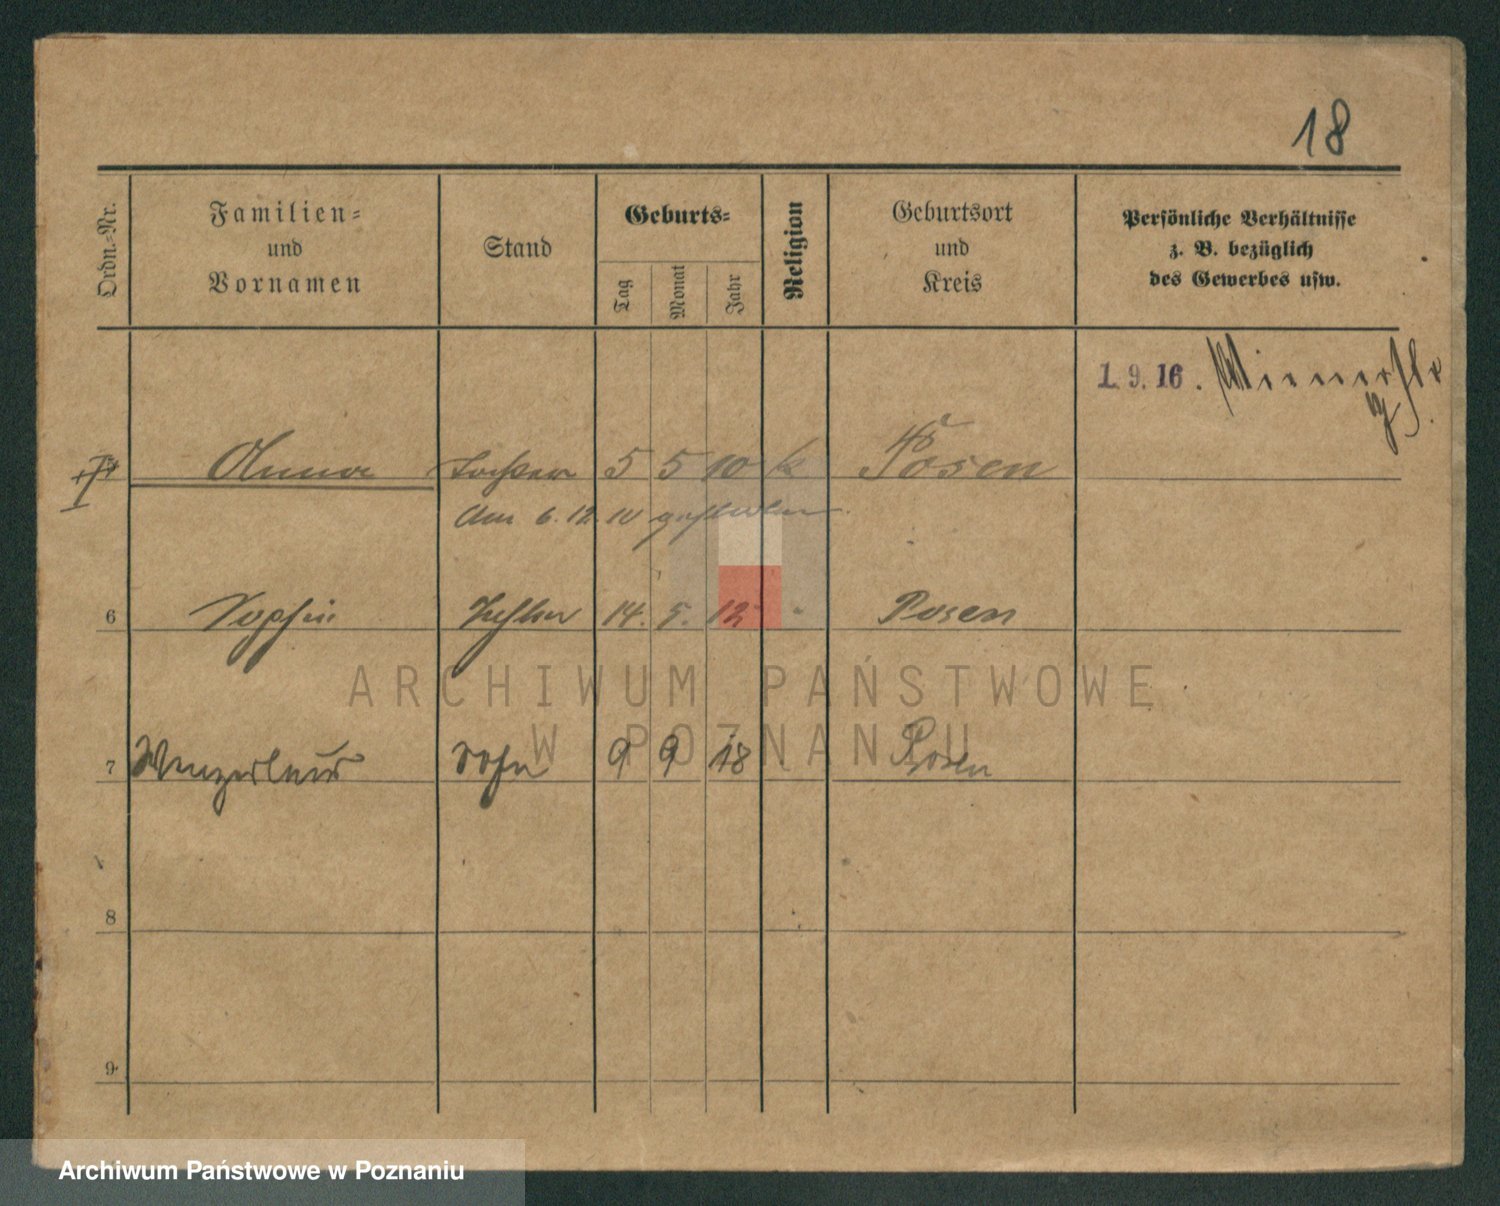 18
Ordn.-Nr.
Familien-
und
Vornamen
Stand
Geburts-
Tag
Monat
Jahr
Religion
Geburtsort
und
Kreis
Persönliche Verhältnisse
z. B. bezüglich
des Gewerbes usw.
1. 9. 16.
Anna Tochter 5 5 10 k Posen
Am 6. 12. 10 gestorben.
6 Sophie Tochter 14. 5. 12 Posen
7 Wenzeslaus Sohn 9 9 18 Posen
8
9
ARCHIWUM PAŃSTWOWE
W POZNANIU
Archiwum Państwowe w Poznaniu